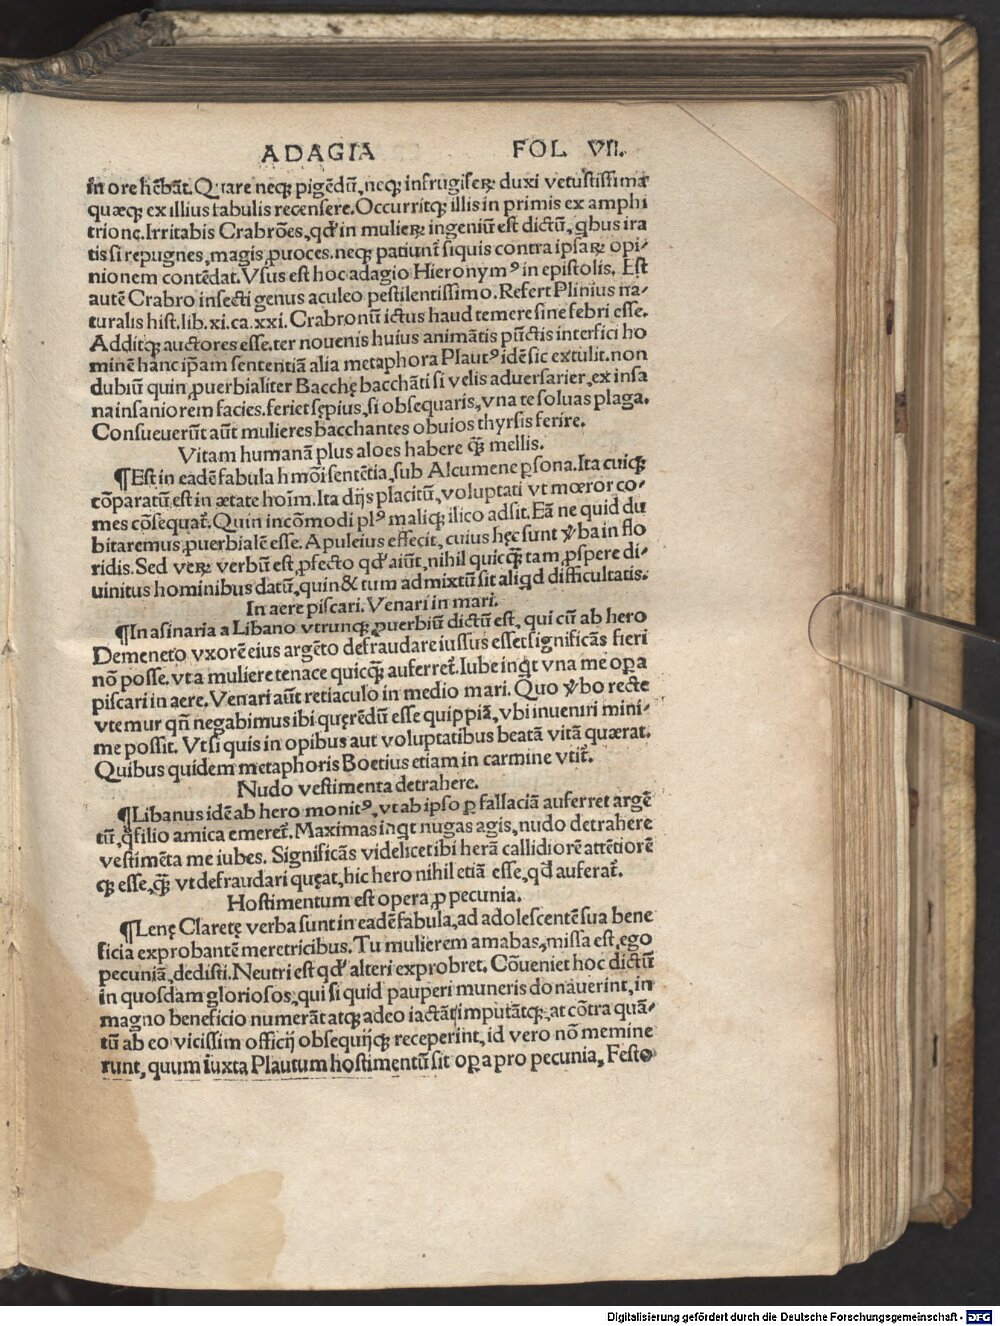 ADAGIA FOL VII.
in ore hēbāt. Quare neqꝫ pigēdū, neqꝫ infrugiferꝝ duxi vetustissima
quæqꝫ ex illius tabulis recensere. Occurritqꝫ illis in primis ex amphi
trione. Irritabis Crabrōes, qđ in mulierꝝ ingeniū est dictū, qbus ira
tis si repugnes, magis ꝓuoces. neqꝫ patiunt̄ siquis contra ipsarꝝ opi-
nionem contēdat. Vsus est hoc adagio Hieronymꝰ in epistolis. Est
autē Crabro insecti genus aculeo pestilentissimo. Refert Plinius na-
turalis hist. lib. xi. ca. xxi. Crabronū ictus haud temere sine febri esse.
Additqꝫ auctores esse. ter nouenis huius animātis pūctis interfici ho
minē hanc ip̄am sententiā alia metaphora Plautꝰ idē sic extulit. non
dubiū quin ꝓuerbialiter Bacchę bacchāti si velis aduersarier, ex insa
na insaniorem facies. feriet sępius, si obsequaris, vna te soluas plaga.
Consueuerūt aūt mulieres bacchantes obuios thyrsis ferire.
Vitam humanā plus aloes habere q̄ꝫ mellis.
¶Est in eadē fabula hmōi sentētia, sub Alcumene ꝑsona. Ita cuiqꝫ
cōparatū est in ætate hoīm. Ita dijs placitū, voluptati vt mœror co-
mes cōsequat̄. Quin incōmodi plꝰ maliqꝫ ilico adsit. Eā ne quid du
bitaremus ꝓuerbialē esse. Apuleius effecit, cuius hęc sunt v̄ba in flo
ridis. Sed verꝝ verbū est, ꝓfecto qđ aiūt, nihil quicq̄ꝫ tam ꝓspere di-
uinitus hominibus datū, quin & tum admixtū sit aliqd difficultatis.
In aere piscari. Venari in mari.
¶In asinaria a Libano vtrunqꝫ ꝓuerbiū dictū est, qui cū ab hero
Demeneto vxorē eius argēto defraudare iussus esset significās fieri
nō posse. vt a muliere tenace quicq̄ꝫ auferret. Iube inqt vna me oꝑa
piscari in aere. Venari aūt retiaculo in medio mari. Quo v̄bo recte
vtemur qn̄ negabimus ibi quęrēdū esse quippiā, vbi inueniri mini-
me possit. Vt si quis in opibus aut voluptatibus beatā vitā quærat.
Quibus quidem metaphoris Boetius etiam in carmine vtit̄.
Nudo vestimenta detrahere.
¶Libanus idē ab hero monitꝰ, vt ab ipso ꝑ fallaciā auferret argē
tū, q̄ filio amica emeret̄. Maximas inqt nugas agis, nudo detrahere
vestimēta me iubes. Significās videlicet ibi herā callidiorē attētiorē
qꝫ esse, q̄ꝫ vt defraudari quęat, hic hero nihil etiā esse, qđ auferat̄.
Hostimentum est opera ꝓ pecunia.
¶Lenę Claretę verba sunt in eadē fabula, ad adolescentē sua bene
ficia exprobantē meretricibus. Tu mulierem amabas, missa est, ego
pecuniā, dedisti. Neutri est qđ alteri exprobret. Cōueniet hoc dictū
in quosdam gloriosos, qui si quid pauperi muneris donauerint, in
magno beneficio numerāt atqꝫ adeo iactāt imputātqꝫ, at cōtra quā-
tū ab eo vicissim officij obsequijqꝫ receperint, id vero nō memine
runt, quum iuxta Plautum hostimentū sit oꝑa pro pecunia, Festo
Digitalisierung gefördert durch die Deutsche Forschungsgemeinschaft - DFG